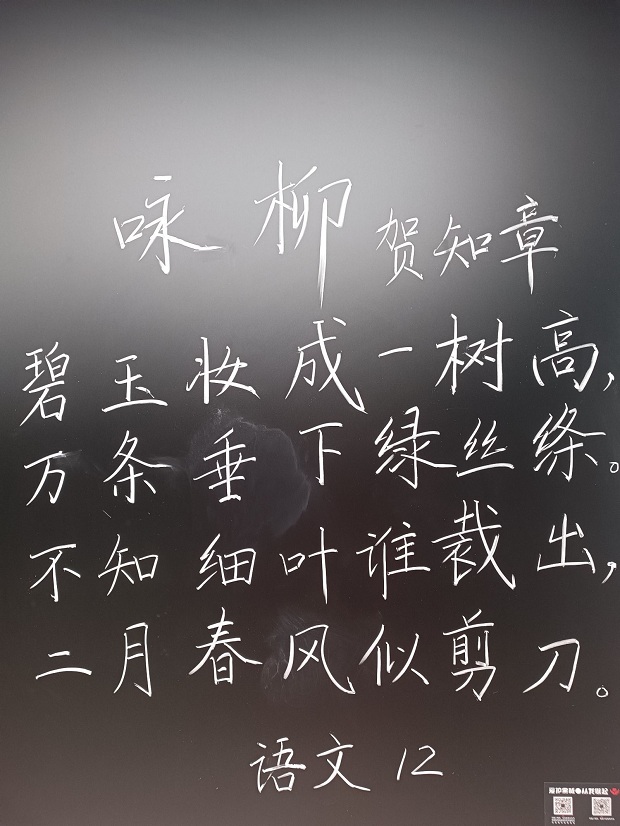 咏柳 贺知章
碧玉妆成一树高,
万条垂下绿丝绦。
不知细叶谁裁出,
二月春风似剪刀。
语文 12